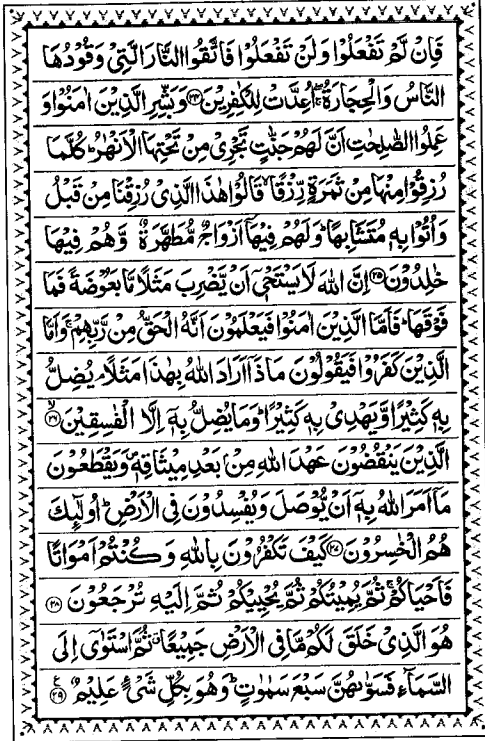 فَاِنْ لَّمْ تَفْعَلُوْا وَلَنْ تَفْعَلُوْا فَاتَّقُوا النَّارَ الَّتِيْ وَقُوْدُهَا
النَّاسُ وَالْحِجَارَةُ ۚ اُعِدَّتْ لِلْكٰفِرِيْنَ ﴿۲۴﴾ وَبَشِّرِ الَّذِيْنَ اٰمَنُوْا وَ
عَمِلُوا الصّٰلِحٰتِ اَنَّ لَهُمْ جَنّٰتٍ تَجْرِيْ مِنْ تَحْتِهَا الْاَنْهٰرُ ؕ كُلَّمَا
رُزِقُوْا مِنْهَا مِنْ ثَمَرَةٍ رِّزْقًا ۙ قَالُوْا هٰذَا الَّذِيْ رُزِقْنَا مِنْ قَبْلُ
وَاُتُوْا بِهٖ مُتَشَابِهًا ؕ وَلَهُمْ فِيْهَاۤ اَزْوَاجٌ مُّطَهَّرَةٌ وَّهُمْ فِيْهَا
خٰلِدُوْنَ ﴿۲۵﴾ اِنَّ اللّٰهَ لَا يَسْتَحْيٖۤ اَنْ يَّضْرِبَ مَثَلًا مَّا بَعُوْضَةً فَمَا
فَوْقَهَا ؕ فَاَمَّا الَّذِيْنَ اٰمَنُوْا فَيَعْلَمُوْنَ اَنَّهُ الْحَقُّ مِنْ رَّبِّهِمْ ۚ وَاَمَّا
الَّذِيْنَ كَفَرُوْا فَيَقُوْلُوْنَ مَاذَاۤ اَرَادَ اللّٰهُ بِهٰذَا مَثَلًا ۘ يُضِلُّ
بِهٖ كَثِيْرًا وَّيَهْدِيْ بِهٖ كَثِيْرًا ؕ وَمَا يُضِلُّ بِهٖۤ اِلَّا الْفٰسِقِيْنَ ﴿ۙ۲۶﴾
الَّذِيْنَ يَنْقُضُوْنَ عَهْدَ اللّٰهِ مِنْۢ بَعْدِ مِيْثَاقِهٖ ۪ وَيَقْطَعُوْنَ
مَاۤ اَمَرَ اللّٰهُ بِهٖۤ اَنْ يُّوْصَلَ وَيُفْسِدُوْنَ فِي الْاَرْضِ ؕ اُولٰٓئِكَ
هُمُ الْخٰسِرُوْنَ ﴿۲۷﴾ كَيْفَ تَكْفُرُوْنَ بِاللّٰهِ وَكُنْتُمْ اَمْوَاتًا
فَاَحْيَاكُمْ ۚ ثُمَّ يُمِيْتُكُمْ ثُمَّ يُحْيِيْكُمْ ثُمَّ اِلَيْهِ تُرْجَعُوْنَ ﴿۲۸﴾
هُوَ الَّذِيْ خَلَقَ لَكُمْ مَّا فِي الْاَرْضِ جَمِيْعًا ۗ ثُمَّ اسْتَوٰۤى اِلَى
السَّمَآءِ فَسَوّٰىهُنَّ سَبْعَ سَمٰوٰتٍ ؕ وَهُوَ بِكُلِّ شَيْءٍ عَلِيْمٌ ﴿۲۹﴾ ع